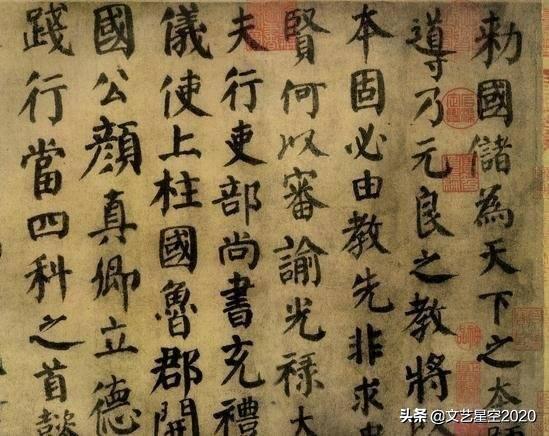 勅國儲為天下之本
導乃元良之教將
本固必由教先非求
賢何以審諭光禄大
夫行吏部尚書充禮
儀使上柱國魯郡開
國公顔真卿立德
踐行當四科之首懿
头条 @文艺星空2020